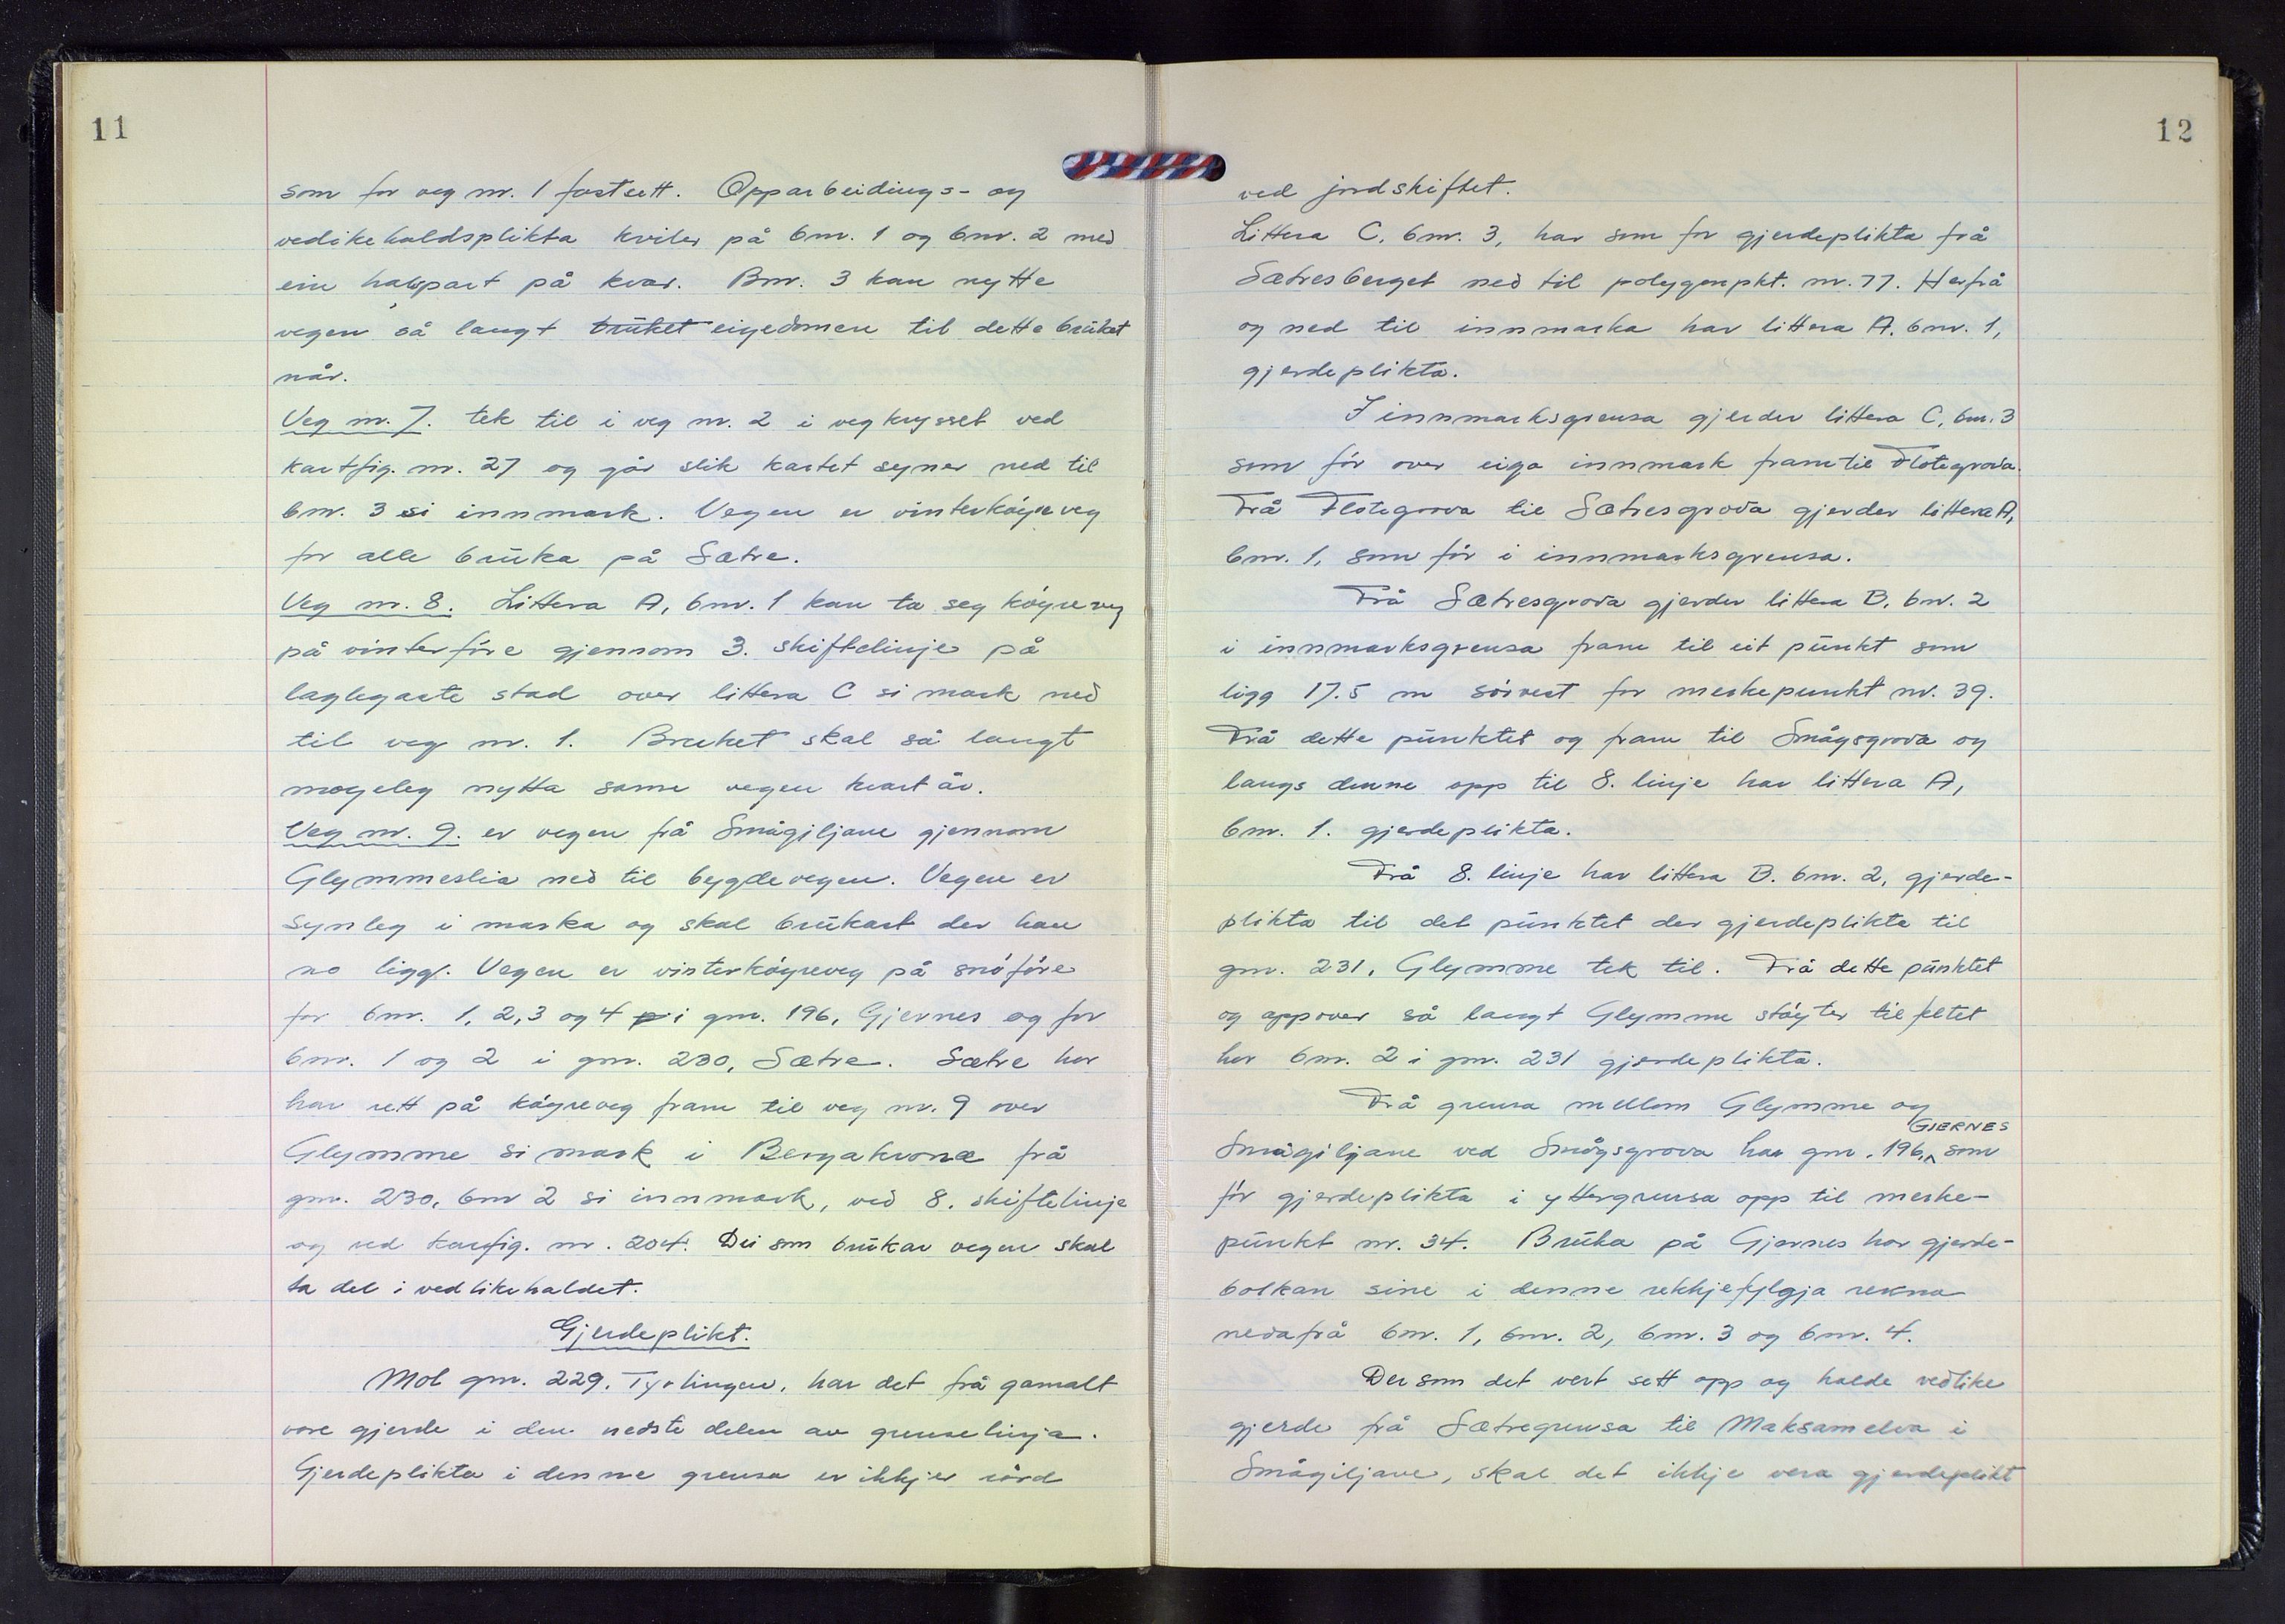 11
som for veg nr. 1 fastsett. Opparbeidings- og
vedikehaldsplikta kviler på bnr. 1 og bnr. 2 med
ein halvpart på kvar. Bnr. 3 kan nytte
vegen så langt bruket eigedomen til dette bruket
når.
Veg nr. 7. tek til i veg nr. 2 i vegkrysset ved
kartfig. nr. 27 og går slik kartet syner ned til
bnr. 3 si innmark. Vegen er vinterkøyreveg
for alle bruka på Sætre.
Veg nr. 8. Littera A, bnr. 1 kan ta seg køyreveg
på vinterføre gjennom 3. skiftelinje på
laglegaste stad over littera C si mark ned
til veg nr. 1. Bruket skal så langt
mogeleg nytta same vegen kvart år.
Veg nr. 9. er vegen frå Smågiljane gjennom
Glymmeslia ned til bygdevegen. Vegen er
synleg i marka og skal brukast der han
no ligg. Vegen er vinterkøyreveg på snøføre
for bnr. 1, 2, 3 og 4 p i gnr. 196, Gjernes og for
bnr. 1 og 2 i gnr. 230, Sætre. Sætre har
har rett på køyreveg fram til veg nr. 9 over
Glymme si mark i Bergakvonæ frå
gnr. 230, bnr 2 si innmark, ved 8. skiftelinje
og ved karfig. nr. 204. Dei som brukar vegen skal
ta del i vedlikehaldet.
Gjerdeplikt.
Mot gnr. 229. Tyrlingen, har det frå gamalt
vore gjerde i den nedste delen av grenselinja.
Gjerdeplikta i denne grensa er ikkje rørd
12
ved jordskiftet.
Littera C, bnr. 3, har som før gjerdeplikta frå
Sætresberget ned til polygonpkt. nr. 77. Herfrå
og ned til innmarka har littera A. bnr. 1,
gjerdeplikta.
I innmarksgrensa gjerder littera C, bnr. 3
som før over eiga innmark fram til Flotegrova.
Frå Flotegrova til Sætresgrova gjerder littera A,
bnr. 1, som før i innmarksgrensa.
Frå Sætresgrova gjerder littera B, bnr. 2
i innmarksgrensa fram til eit punkt som
ligg 17.5 m sørvest for merkepunkt nr. 39.
Frå dette punktet og fram til Smågsgrova og
langs denne opp til 8. linje har littera A,
bnr. 1. gjerdeplikta.
Frå 8. linje har littera B. bnr. 2, gjerde-
plikta til det punktet der gjerdeplikta til
gnr. 231, Glymme tek til. Frå dette punktet
og oppover så langt Glymme støyter til feltet
har bnr. 2 i gnr. 231 gjerdeplikta.
Frå grensa mellom Glymme og
GJERNES
Smågiljane ved Smågsgrova har gnr. 196, som
før gjerdeplikta i yttergrensa opp til merke-
punkt nr. 34. Bruka på Gjernes har gjerde-
bolkan sine i denne rekkjefylgja rekna
nedafrå bnr. 1, bnr. 2, bnr. 3 og bnr. 4.
Dersom det vert sett opp og halde vedlike
gjerde frå Sætregrensa til Maksamelva i
Smågiljane, skal det ikkje vera gjerdeplikt